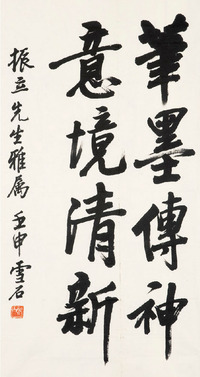 筆墨傳神
意境清新
振立先生雅属 壬申 雪石